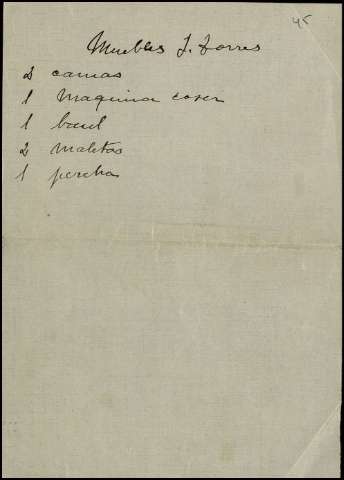 45
Muebles J. Torres
2 camas
1 maquina coser
1 baul
2 maletas
1 percha